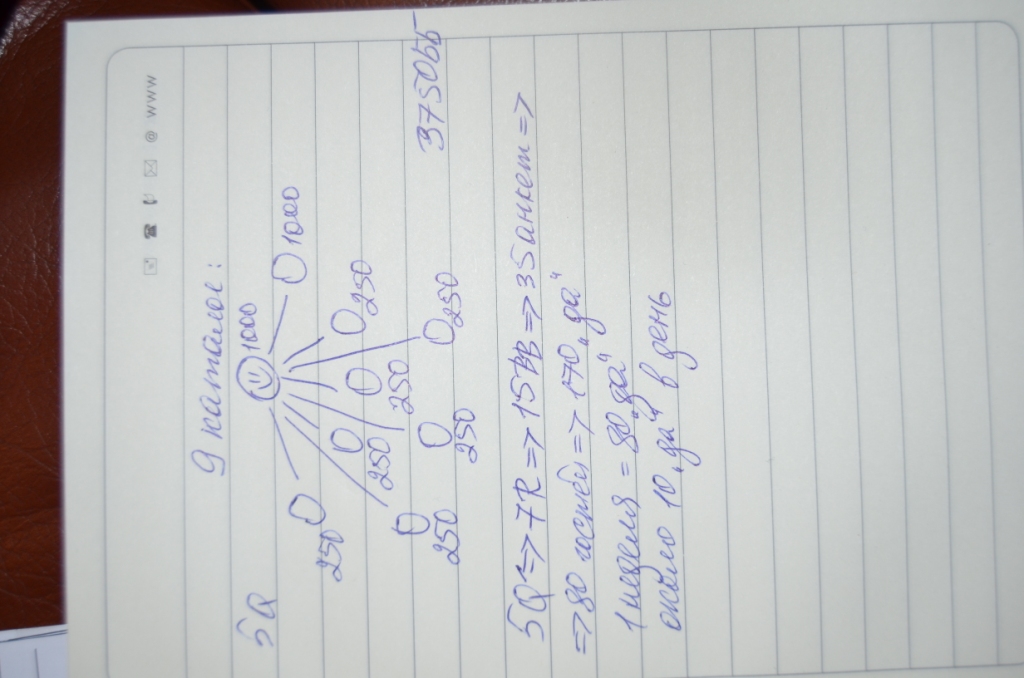 @ www
9 каталог:
5Q
1000
1000
250
250
250
250
250
250
250
3750ББ
5Q => 7R => 15ВВ => 35 анкет =>
=> 80 гостей => 170 „да“
1 неделя = 80 „да“
около 10 „да“ в день